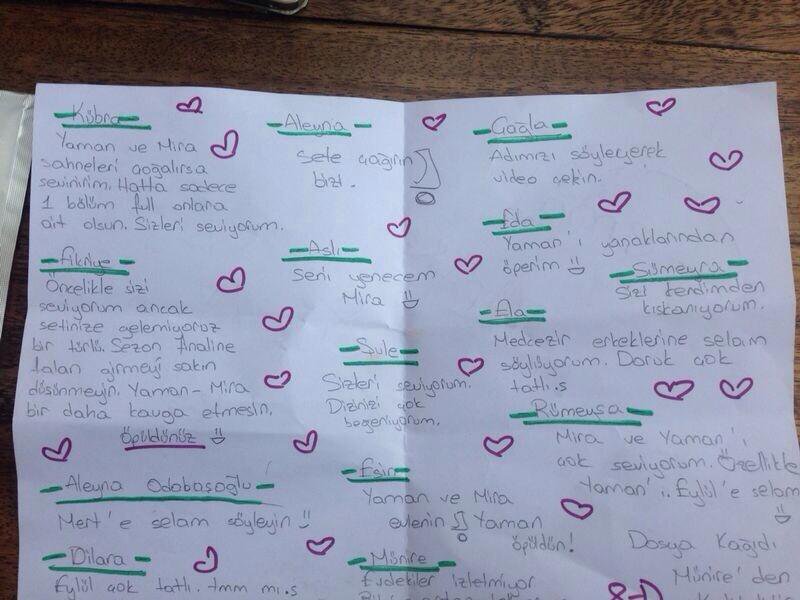 Kübra
Yaman ve Mira
sahneleri çoğalırsa
sevinirim. Hatta sadece
1 bölüm full onlara
ait olsun. Sizleri seviyorum.
Fikriye
Öncelikle sizi
seviyorum ancak
setinize gelemiyoruz
bir türlü. Sezon finaline
falan girmeyi sakın
düşünmeyin. Yaman-Mira
bir daha kavga etmesin.
Öpüldünüz
Aleyna Odabaşoğlu
Mert'e selam söyleyin
Dilara
Eylül çok tatlı. tmm mı.s
Aleyna
Sete çağırın
bizi.
Aslı
Seni yenecem
Mira
Şule
Sizleri seviyorum.
Dizinizi çok
beğeniyorum.
Esin
Yaman ve Mira
evlenin Yaman
öpüldün!
Münire
Evdekiler izletmiyor
Çağla
Adımızı söyleyerek
video çekin.
Eda
Yaman'ı yanaklarından
öperim
Sümeyra
Sizi kendimden
kıskanıyorum.
Ela
Medcezir erkeklerine selam
söylüyorum. Doruk çok
tatlı.s
Rümeysa
Mira ve Yaman'ı
çok seviyorum. Özellikle
Yaman'ı. Eylül'e selam
Dosya Kağıdı
Münire'den